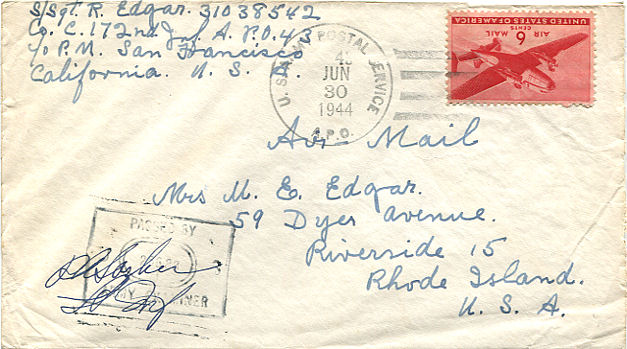 S/Sgt. R. Edgar. 31038542
Co. C. 172nd Inf. A.P.O. 43
℅ P.M. San Francisco
California. U. S. A.
U.S. ARMY POSTAL SERVICE
43
JUN
30
1944
A.P.O.
AIR MAIL
6 CENTS
UNITED STATES OF AMERICA
Air Mail
Mrs M. E. Edgar.
59 Dyer avenue.
Riverside 15
Rhode Island.
U. S. A.
PASSED BY
ARMY EXAMINER